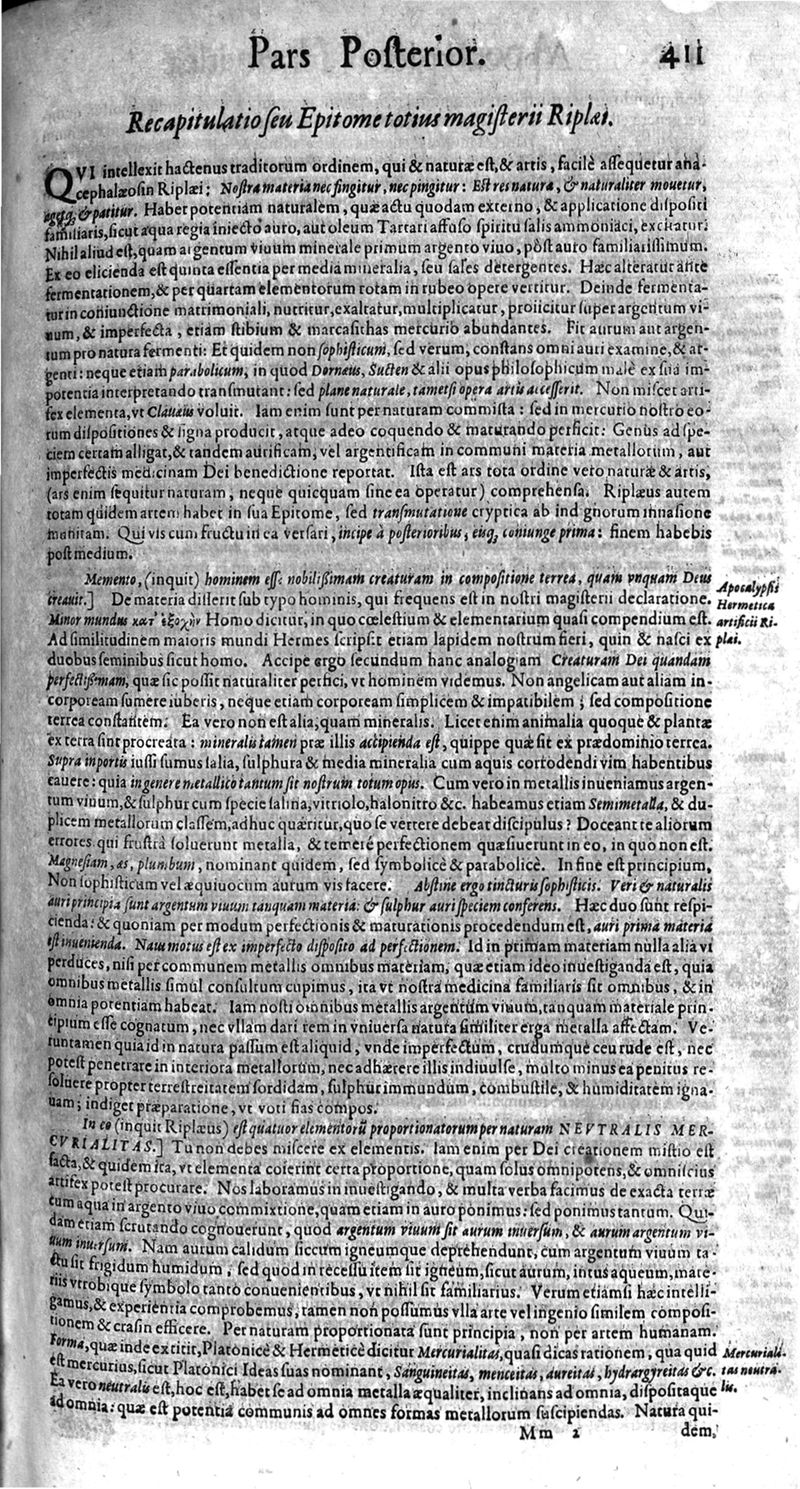 Pars Posterior. 411
Recapitulatio seu Epitome totius magisterii Riplæi.
QVI intellexit hactenus traditorum ordinem, qui & naturæ est, & artis, facilè assequetur ana-
cephalæosin Riplæi: Nostra materia nec fingitur, nec pingitur: Est res natura, & naturaliter mouetur,
agetq́, & patitur. Habet potentiam naturalem, quæ actu quodam externo, & applicatione dispositi
familiaris, sicut aqua regia iniecto auro, aut oleum Tartari affuso spiritu salis ammoniaci, excitatur:
Nihil aliud est, quam argentum viuum minerale primum argento viuo, pòst auro familiarissimum.
Ex eo elicienda est quinta essentia per media mineralia, seu sales detergentes. Hæc alteratur ante
fermentationem, & per quartam elementorum rotam in rubeo opere vertitur. Deinde fermenta-
tur in coniunctione matrimoniali, nutritur, exaltatur, multiplicatur, proiicitur super argentum vi-
uum, & imperfecta, etiam stibium & marcasithas mercurio abundantes. Fit aurum aut argen-
tum pro natura fermenti: Et quidem non sophisticum, sed verum, constans omni auri examine, & ar-
genti: neque etiam parabolicum, in quod Dornæus, Sucten & alii opus philosophicum malè ex sua im-
potentia interpretando transmutant: sed plane naturale, tametsi opera artis accesserit. Non miscet arti-
fex elementa, vt Clauæus voluit. Iam enim sunt per naturam commista: sed in mercurio nostro eo-
rum dispositiones & signa producit, atque adeo coquendo & maturando perficit: Genus ad spe-
ciem certam alligat, & tandem aurificam, vel argentificam in communi materia metallorum, aut
imperfectis medicinam Dei benedictione reportat. Ista est ars tota ordine vero naturæ & artis,
(ars enim sequitur naturam, neque quicquam sine ea operatur) comprehensa. Riplæus autem
totam quidem artem habet in sua Epitome, sed transmutatione cryptica ab indignorum inuasione
munitam. Qui vis cum fructu in ea versari, incipe à posterioribus, eiq́; coniunge prima: finem habebis
post medium.
Memento, (inquit) hominem esse nobilissimam creaturam in compositione terrea, quam vnquam Deus
creauit.] De materia disserit sub typo hominis, qui frequens est in nostri magisterii declaratione.
Minor mundus κατ' ἐξοχὴν Homo dicitur, in quo cœlestium & elementarium quasi compendium est.
Ad similitudinem maioris mundi Hermes scripsit etiam lapidem nostrum fieri, quin & nasci ex
duobus seminibus sicut homo. Accipe ergo secundum hanc analogiam Creaturam Dei quandam
perfectissimam, quæ sic possit naturaliter perfici, vt hominem videmus. Non angelicam aut aliam in-
corpoream sumere iuberis, neque etiam corpoream simplicem & impatibilem; sed compositione
terrea constantem. Ea vero non est alia, quam mineralis. Licet enim animalia quoque & plantæ
ex terra sint procreata: mineralis tamen præ illis accipienda est, quippe quæ sit ex prædominio terrea.
Supra in portis iussi sumus salia, sulphura & media mineralia cum aquis corrodendi vim habentibus
cauere: quia in genere metallico tantum sit nostrum totum opus. Cum vero in metallis inueniamus argen-
tum viuum, & sulphur cum specie salina, vitriolo, halonitro &c. habeamus etiam Semimetalla, & du-
plicem metallorum classem, adhuc quæritur, quo se vertere debeat discipulus? Doceant te aliorum
errores qui frustrà soluerunt metalla, & temerè perfectionem quæsiuerunt in eo, in quo non est.
Magnesiam, æs, plumbum, nominant quidem, sed symbolicè & parabolicè. In fine est principium,
Non sophisticum vel æquiuocum aurum vis facere. Abstine ergo tincturis sophisticis. Veri & naturalis
auri principia sunt argentum viuum tanquam materia: & sulphur auri speciem conferens. Hæc duo sunt respi-
cienda: & quoniam per modum perfectionis & maturationis procedendum est, auri prima materia
est inuenienda. Nam motus est ex imperfecto disposito ad perfectionem. Id in primam materiam nulla alia vi
perduces, nisi per communem metallis omnibus materiam, quæ etiam ideo inuestiganda est, quia
omnibus metallis simul consultum cupimus, ita vt nostra medicina familiaris sit omnibus, & in
omnia potentiam habeat. Iam nosti omnibus metallis argentum viuum, tanquam materiale prin-
cipium esse cognatum, nec vllam dari rem in vniuersa natura similiter erga metalla affectam. Ve-
runtamen quia id in natura passum est aliquid, vnde imperfectum, crudumque ceu rude est, nec
potest penetrare in interiora metallorum, nec adhærere illis indiuulse, multo minus ea penitus re-
soluere propter terrestreitatem sordidam, sulphur immundum, combustile, & humiditatem igna-
uam; indiget præparatione, vt voti fias compos.
In eo (inquit Riplæus) est quatuor elementorũ proportionatorum per naturam NEVTRALIS MER-
CVRIALITAS.] Tu non debes miscere ex elementis. Iam enim per Dei creationem mistio est
facta, & quidem ita, vt elementa coierint certa proportione, quam solus omnipotens, & omniscius
artifex potest procurare. Nos laboramus in inuestigando, & multa verba facimus de exacta terræ
cum aqua in argento viuo commixtione, quam etiam in auro ponimus: sed ponimus tantum. Qui-
dam etiam scrutando cognouerunt, quod argentum viuum sit aurum inuersum, & aurum argentum vi-
uum inuersum. Nam aurum calidum siccum igneumque deprehendunt, cum argentum viuum ta-
ctu sit frigidum humidum, sed quod in recessu item sit igneum, sicut aurum, intus aqueum, mate-
riis vtrobique symbolo tanto conuenientibus, vt nihil sit familiarius. Verum etiamsi hæc intelli-
gamus, & experientia comprobemus, tamen non possumus vlla arte vel ingenio similem composi-
tionem & crasin efficere. Per naturam proportionata sunt principia, non per artem humanam.
Forma, quæ inde exsitit, Platonicè & Hermeticè dicitur Mercurialitas, quasi dicas rationem, qua quid
est mercurius, sicut Platonici Ideas suas nominant, Sanguineitas, menceitas, aureitas, hydrargyreitas &c.
Ea vero neutralis est, hoc est, habet se ad omnia metalla æqualiter, inclinans ad omnia, dispositaque
ad omnia: quæ est potentia communis ad omnes formas metallorum suscipiendas. Natura qui-
Mm 2 dem,
Apocalypsis
Hermetica
artificii Ri-
plæi.
Mercuriali-
tas neutra-
lis.